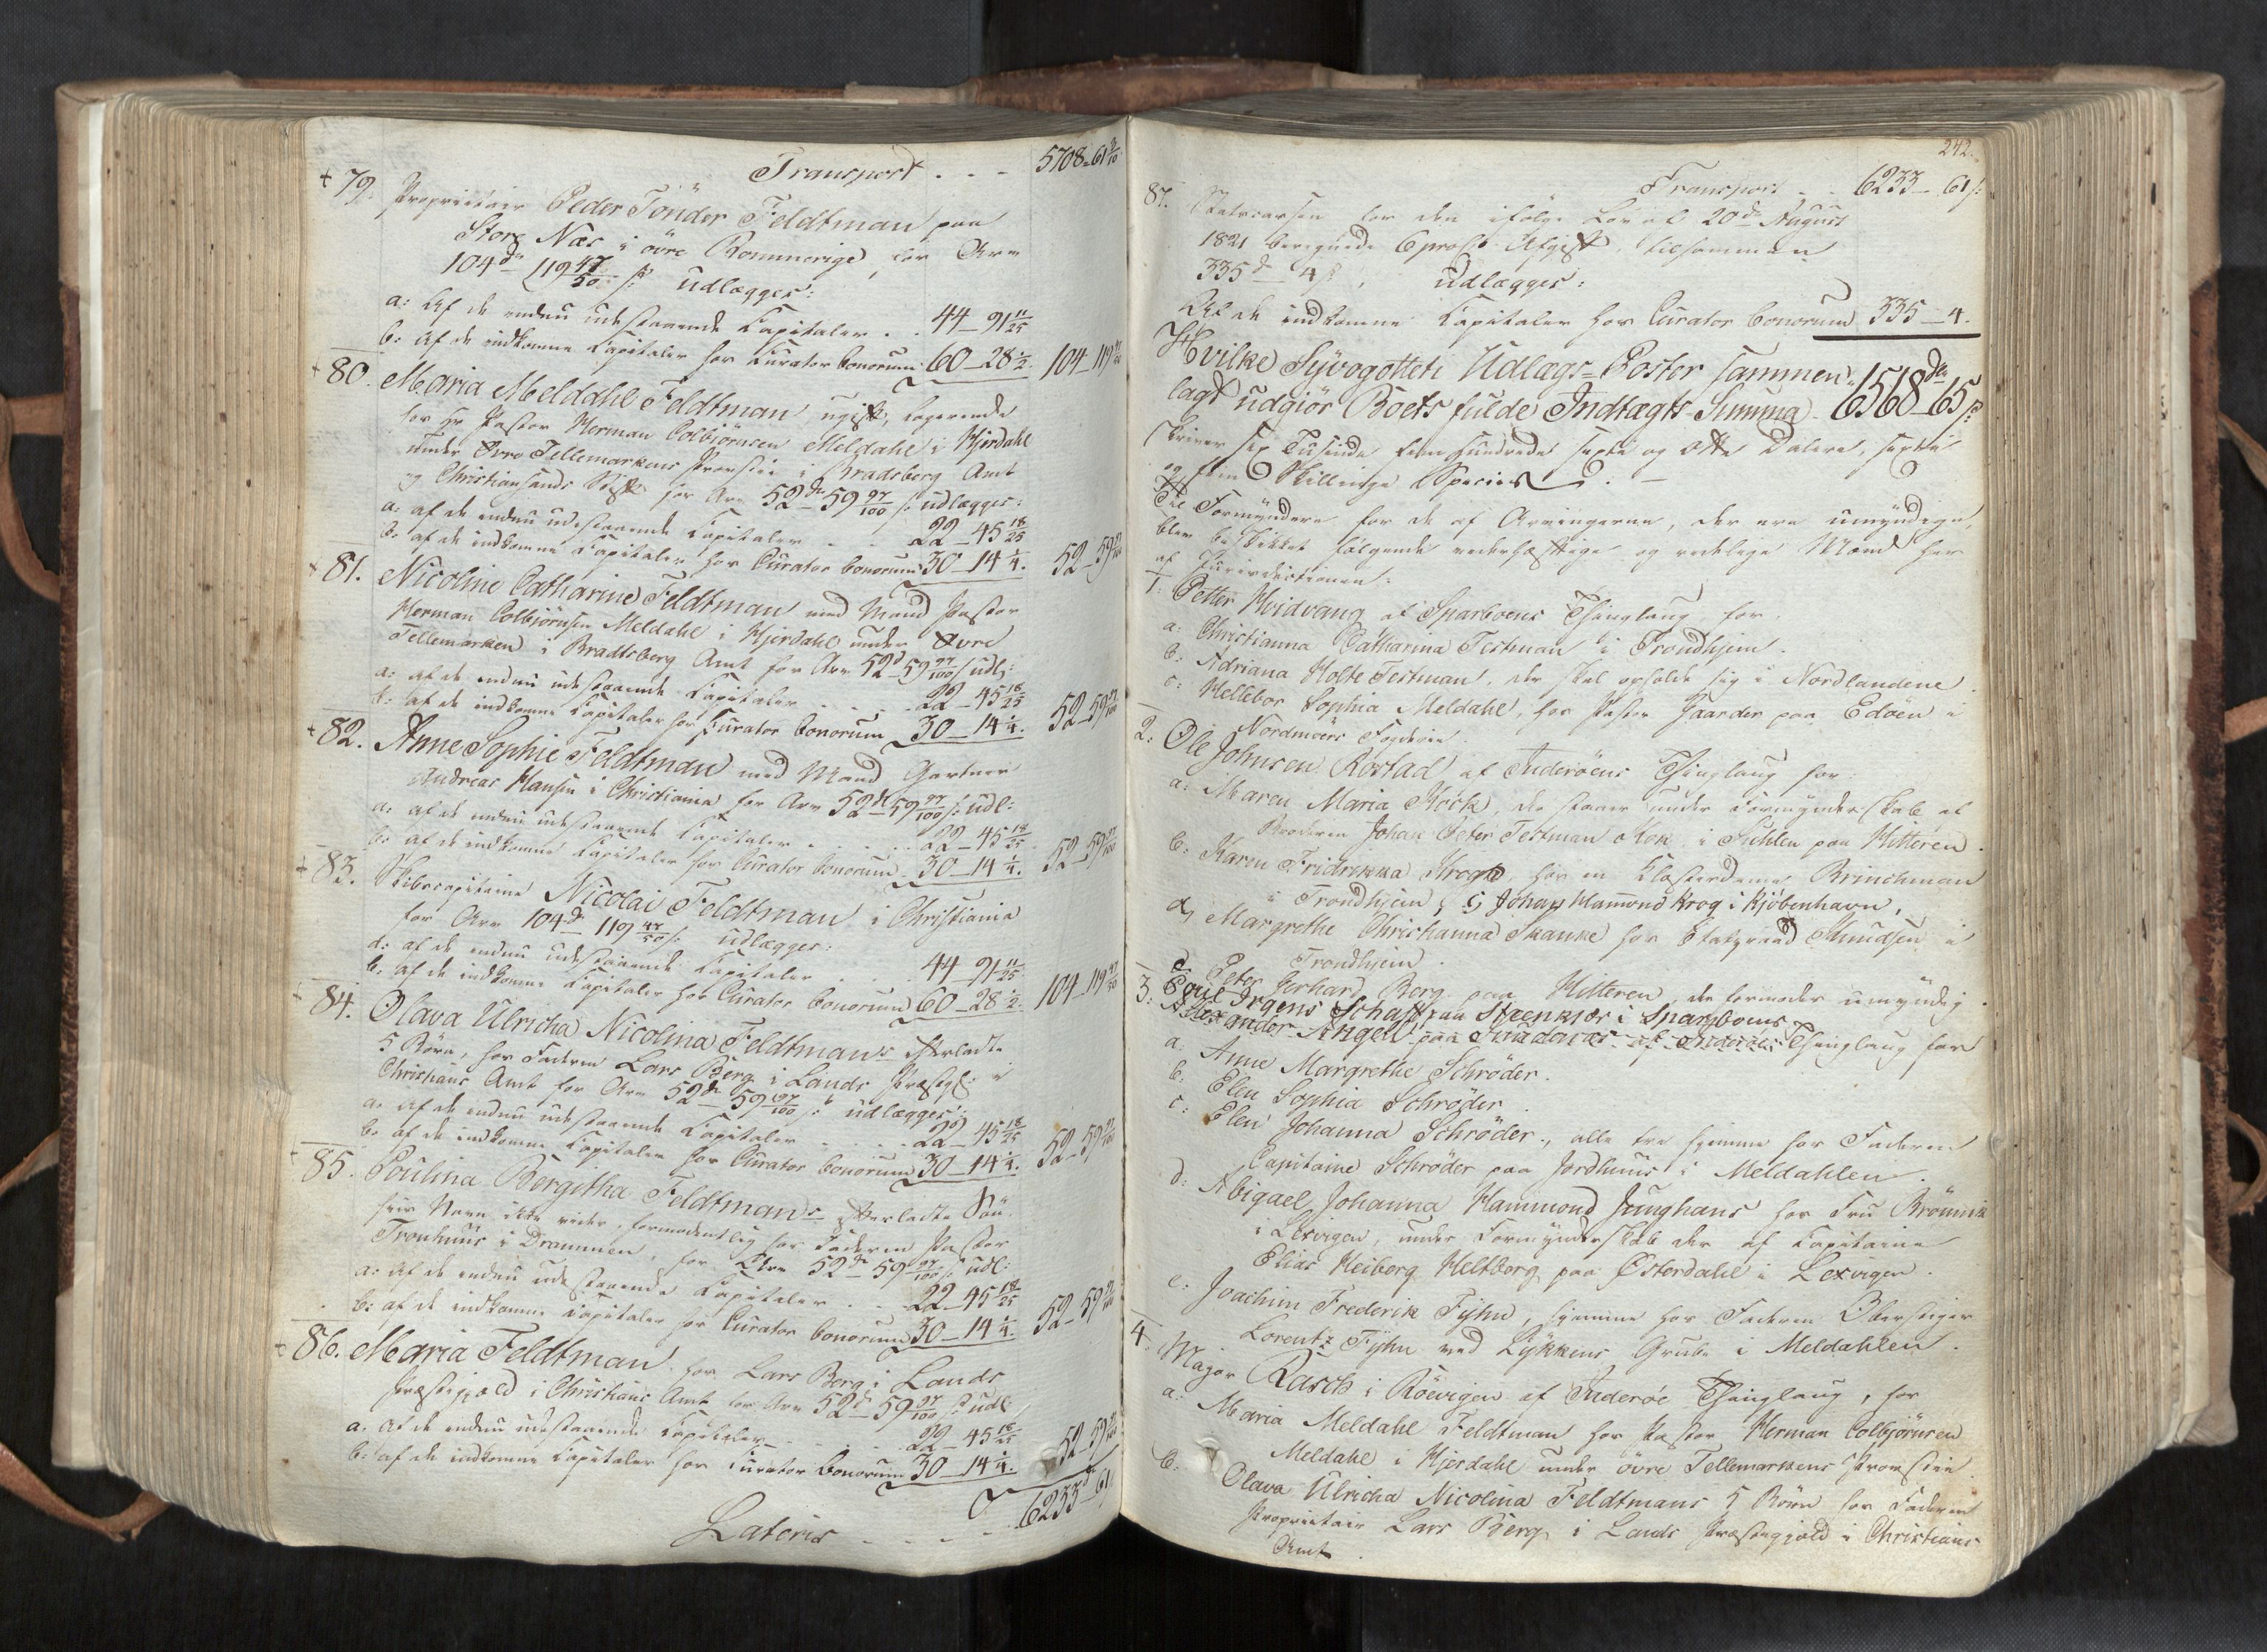 Transport . . - 5708-61 3/10
+ 79. Proprietair Peder Tönder Feldtman paa
Store Næs i övre Rommerige, for Arv
104 dr 119 47/50 s: udlægges:
a: Af de endnu udestaaende Capitaler . . 44-91 11/25
b: Af de indkomne Capitaler hos Curator bonorum 60-28 1/2. 104-119 47/50
+ 80. Maria Meldahl Feldtman ugift, logerende
hos Hr Pastor Herman Colbjörnsen Meldahl i Hjerdahl
under Övre Tellemarkens Provstie i Bradsberg Amt
og Christiansands Stift for Arv 52 dr 59 97/100 s: udlægges:
a: af de endnu udestaaende Capitaler . . 22-45 18/25
b: af de indkomne Capitaler hos Curator bonorum 30-14 1/4. 52-59 97/100
+ 81. Nicoline Catharine Feldtman med Mand Pastor
Herman Colbiörnsen Meldahl i Hjerdahl under Övre
Tellemarken i Bradtsberg Amt for Arv 52 d 59 97/100 s udl:
a: af de endnu udestaaende Capitaler . . . 22-45 18/25
b: af de indkomne Capitaler hos Curator bonorum 30-14 1/4. 52-59 97/100
+ 82. Anne Sophie Feldtman med Mand Gartner
Andreas Hansen i Christiania for Arv 52 dr 59 97/100 s: udl:
a: af de endnu udestaaende Capitaler . . . 22-45 18/25
b: af de indkomne Capitaler hos Curator bonorum 30-14 1/4. 52-59 97/100
+ 83. Skibscapitaine Nicolai Feldtman i Christiania
for Arv 104 dr 119 47/50 s: udlægges:
a: af de endnu udestaaende Capitaler . . 44-91 11/25
b: af de indkomne Capitaler hos Curator bonorum 60-28 1/2. 104-119 47/50
+ 84. Olava Ulricha Nicolina Feldtmans efterladte
5 Börn, hos Faderen Lars Berg i Lands Præstegl: i
Christians Amt for Arv 52 dr 59 97/100 s: udlægges:
a: af de endnu udestaaende Capitaler . . . 22-45 18/25
b: af de indkomne Capitaler hos Curator bonorum 30-14 1/4. 52-59 97/100
85. Poulina Bergitha Feldtmans efterladte Sön
hvis Navn ikke vides, formodentlig hos Faderen Pastor
Tronhuus i Drammen, for Arv 52 dr 59 97/100 s: udl:
a: af de endnu udestaaende Capitaler . . 22-45 18/25
b: af de indkomne Capitaler hos Curator bonorum 30-14 1/4. 52-59 97/100
86. Maria Feldtman hos Lars Berg i Lands
Præstegjæld i Christians Amt for Arv 52 dr 59 97/100 s: udl:
a: af de endnu udestaaende Capitaler . . . 22-45 18/25
b: af de indkomne Capitaler hos Curator bonorum 30-14 1/4. 52-59 97/100
Lateris - - - - 6233-61
242.
Transport - - 6233-61 s:
87. Statscassen for den ifölge Lov af 20de August
1821 beregnede 6 proCt Afgift, tilsammen
335 dr 4 s, udlægges:
Af de indkomne Capitaler hos Curator bonorum 335-4.
Hvilke Syvogotteti Udlægs-Poster sammen-
lagt udgiör Boets fulde Indtægts-Summa 6568 dr 65 s
skriver Sex Tusinde fem Hundrede sexti og otte Dalere, sexti
og fem Skillinge Species.
Til Formyndere for de af Arvingerne, der ere umyndige,
blev beskikket fölgende vederhæftige og redelige Mænd her
af Jurisdictionen:
1: Petter Hvidvang af Sparboens Thinglaug for.
a: Christianna Catharina Testman i Trondhjem.
b: Adriana Holte Testman, der skal opholde sig i Nordlandene.
c: Hellebor Sophia Meldahl, hos Pastor Gaarder paa Edöen i
Nordmöers Fogderie.
2: Ole Johnsen Rostad af Inderöens Thinglaug for:
a: Maren Maria Kock, der staaer under Formynderskab af
Broderen Johan Peter Testman Kok i Suhlen paa Hitteren.
b: Karen Fridrikka Krogh, hos en Klosterdame Brinchman
i Trondhjem; c, Johan Hammond Krog i Kjöbenhavn,
d, Margrethe Christianna Skanke hos Etatsraad Knudsen i
Trondhjem.
e Peter Gerhard Berg paa Hitteren, der formodes umyndig.
3: Poul Irgens Schaft paa Steenkjær i Sparsboens
Alexander Angell paa Sundnæs af Inderöens Thinglaug for
a: Anne Margrethe Schröder.
b: Elen Sophia Schröder.
c: Elen Johanna Schröder, alle tre hjemme hos Faderen
Capitaine Schröder paa Jordhuus i Meldahlen.
d: Abigael Johanna Hammond Junghans hos Fru Brömnik
i Lexvigen, under Formynderskab der af Capitaine
Elias Heiberg Heltborg paa Österdahl i Lexvigen.
e: Joachim Frederik Fyhn, hjemme hos Faderen Oberstiger
Lorentz Fyhn ved Lykkens Grube i Meldahlen.
4. Major Rasch i Röevigen af Inderöe Thinglaug, for
a: Maria Meldahl Feldtman hos Pastor Herman Colbjörnsen
Meldahl i Hjerdahl under övre Tellemarkens Provstie.
b: Olava Ulricha Nicolina Feldtmans 5 Börn hos Faderen
Proprietair Lars Berg i Lands Præstegjæld i Christians
Amt.